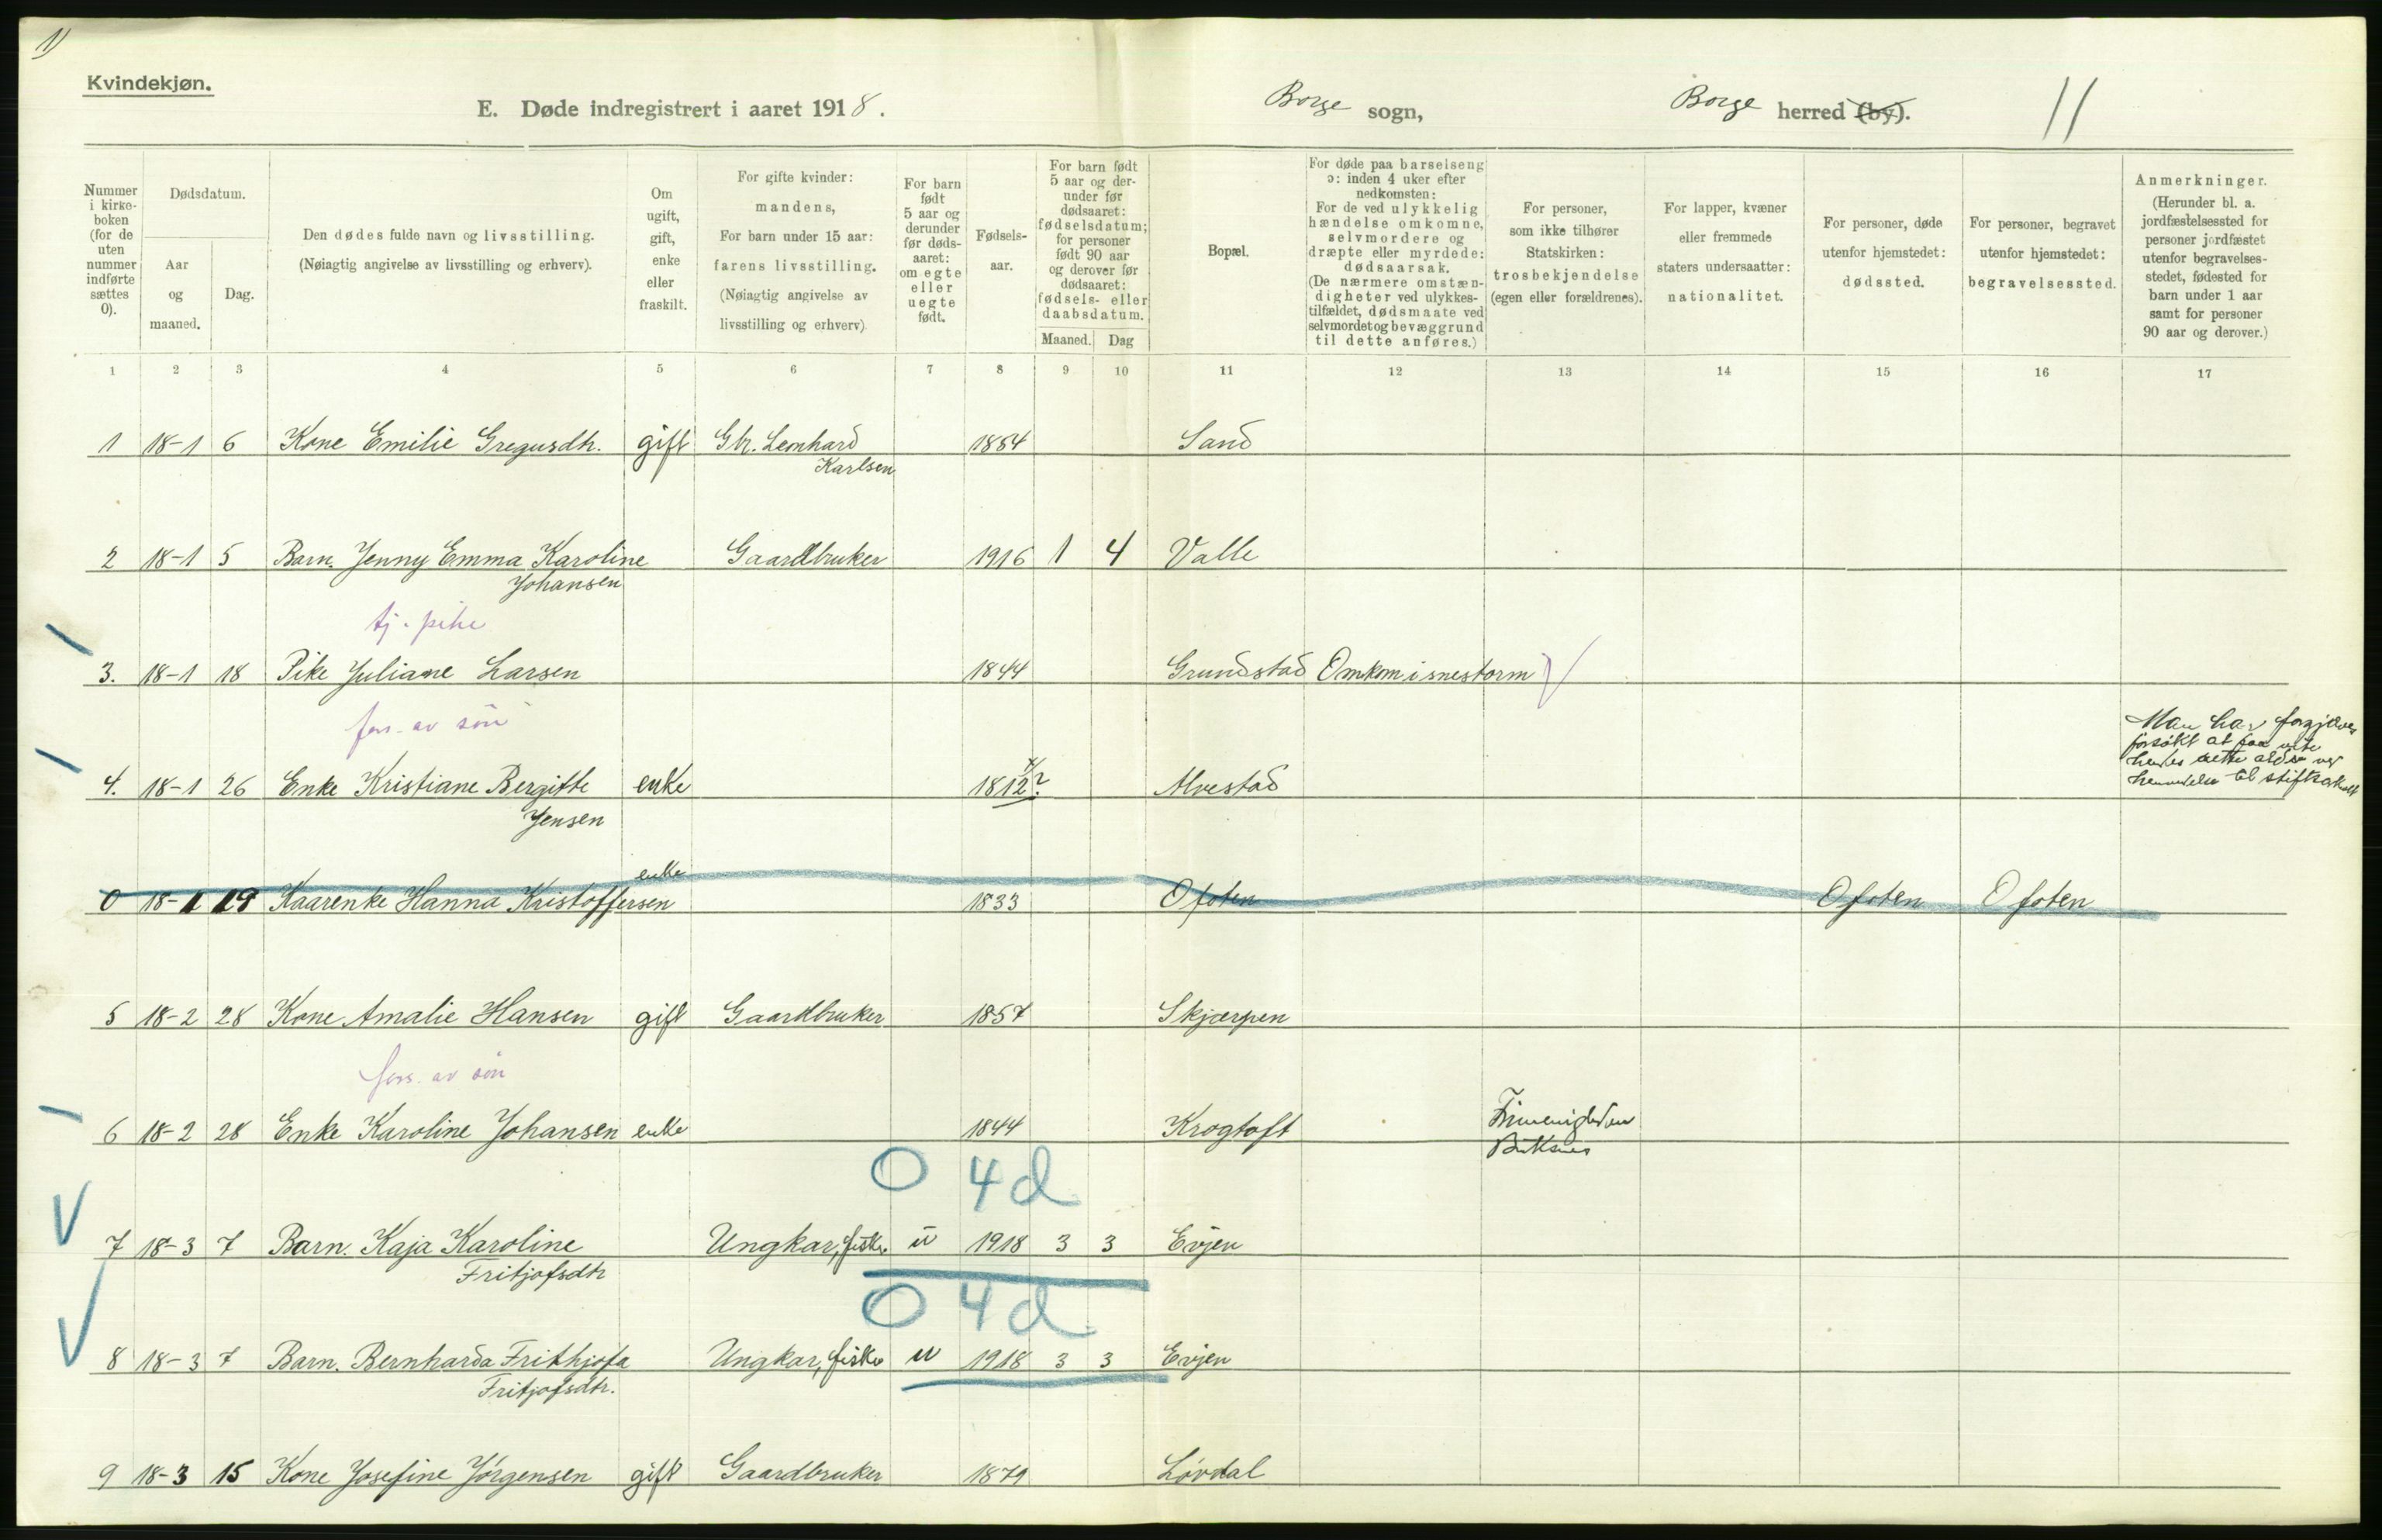 1)
Kvindekjøn.
E. Døde indregistrert i aaret 1918.
Borge sogn,
Borge herred (by).
11
Nummer i kirkeboken (for de uten nummer indførte sættes 0).
Dødsdatum.
Aar og maaned.
Dag.
Den dødes fulde navn og livsstilling.
(Nøiagtig angivelse av livsstilling og erhverv).
Om ugift, gift, enke eller fraskilt.
For gifte kvinder: mandens,
For barn under 15 aar: farens livsstilling.
(Nøiagtig angivelse av livsstilling og erhverv).
For barn født 5 aar og derunder før dødsaaret: om egte eller uegte født.
Fødselsaar.
For barn født 5 aar og derunder før dødsaaret: fødselsdatum; for personer født 90 aar og derover før dødsaaret: fødsels- eller daabsdatum.
Maaned.
Dag
Bopæl.
For døde paa barselseng ɔ: inden 4 uker efter nedkomsten:
For de ved ulykkelig hændelse omkomne, selvmordere og dræpte eller myrdede: dødsaarsak.
(De nærmere omstændigheter ved ulykkestilfældet, dødsmaate ved selvmordet og bevæggrund til dette anføres.)
For personer, som ikke tilhører Statskirken: trosbekjendelse (egen eller forældrenes).
For lapper, kvæner eller fremmede staters undersaatter: nationalitet.
For personer, døde utenfor hjemstedet: dødssted.
For personer, begravet utenfor hjemstedet: begravelsessted.
Anmerkninger.
(Herunder bl. a. jordfæstelsessted for personer jordfæstet utenfor begravelsesstedet, fødested for barn under 1 aar samt for personer 90 aar og derover.)
1 2 3 4 5 6 7 8 9 10 11 12 13 14 15 16 17
1 18-1 6 Kone Emilie Gregusdtr. gift Gbr. Leonhard 1854 Sand
Karlsen
2 18-1 5 Barn. Jenny Emma Karoline Gaardbruker 1916 1 4 Valle
Johansen
tj. pike
3. 18-1 18 Pike Juliane Larsen 1844 Grundstad Omkom i snestorm
fors. av søn
Man har forgjæves
forsøkt at faa vite
hendes rette alder ved
henvendelse til stiftsarkivet
4. 18-1 26 Enke Kristiane Bergitte enke 1812? Alvestad
Jensen
enke
0 18-1 19 Kaarenke Hanna Kristoffersen 1833 Ofoten Ofoten Ofoten
5 18-2 28 Kone Amalie Hansen gift Gaardbruker 1857 Skjærpen
fors. av søn
6 18-2 28 Enke Karoline Johansen enke 1844 Krogtoft
Buksnes
0 4 d
7 18-3 7 Barn. Kaja Karoline Ungkar, fisker u 1918 3 3 Evjen
Fritjofsdtr
0 4 d
8 18-3 7 Barn. Bernharda Frithjofa Ungkar, fisker u 1918 3 3 Evjen
Fritjofsdtr.
9 18-3 15 Kone Josefine Jörgensen gift Gaardbruker 1879 Lövdal